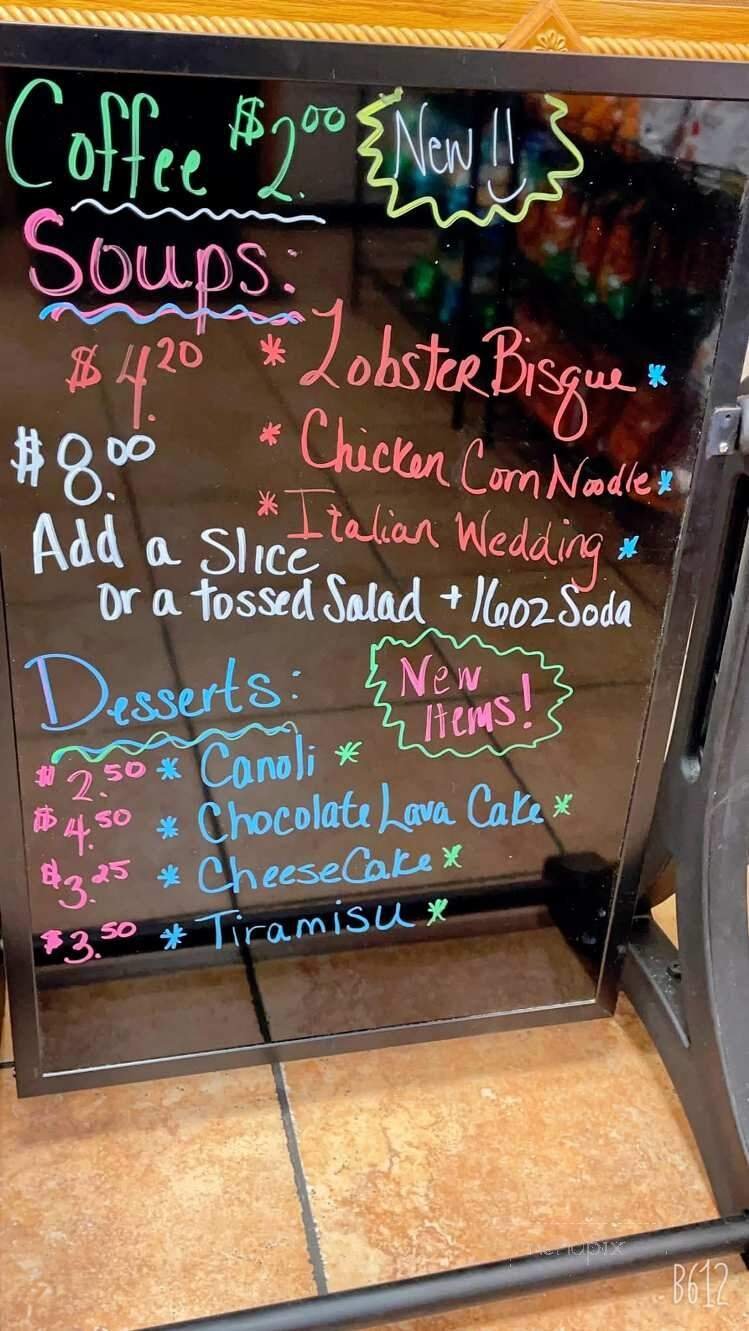 Coffee $2.00 New!!
Soups:
$4.20 * Lobster Bisque *
* Chicken Corn Noodle *
$8.00
* Italian Wedding *
Add a Slice
or a tossed Salad + 16oz Soda
Desserts: New Items!
$2.50 * Canoli *
$4.50 * Chocolate Lava Cake *
$3.25 * CheeseCake *
$3.50 * Tiramisu *
menupix
B612